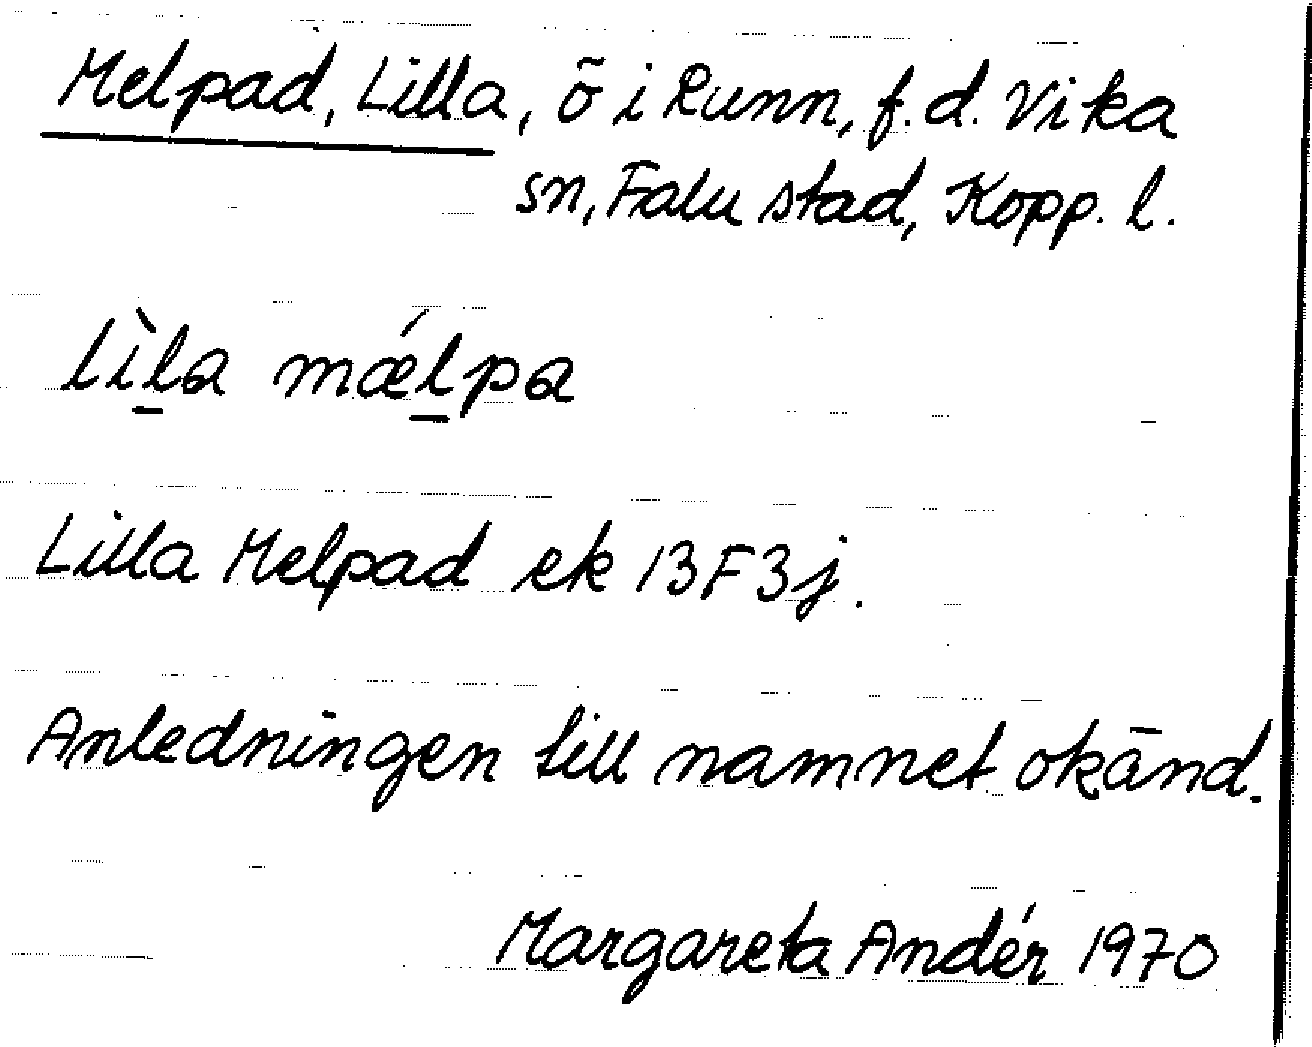 Melpad, Lilla, ö i Runn, f.d. Vika
sn, Falu stad, Kopp. l.
lìl̲a mǽl̲pa
Lilla Melpad ek 13F3j.
Anledningen till namnet okänd.
Margareta Andér 1970